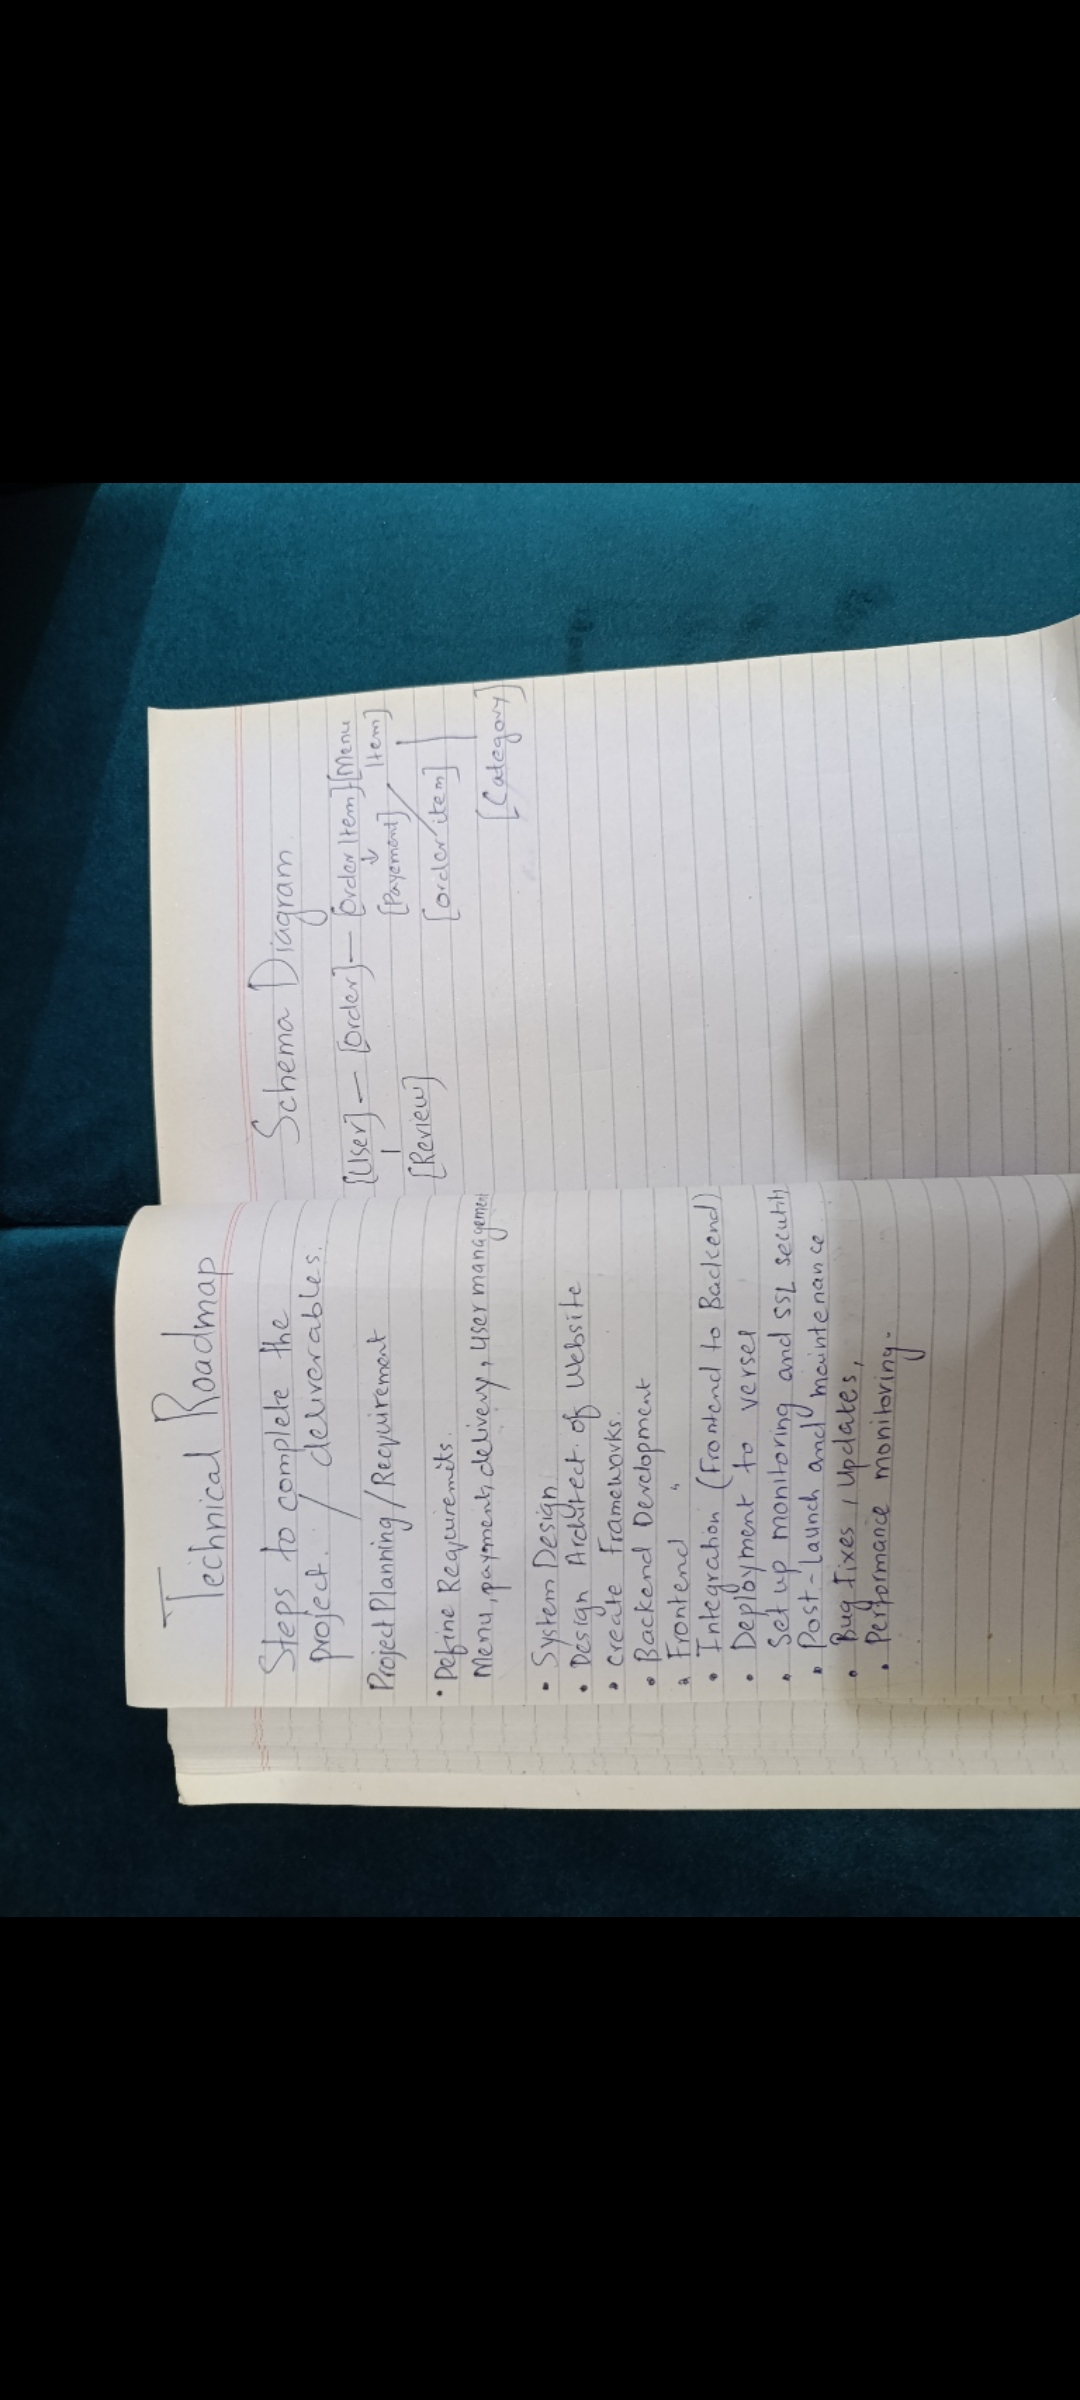 Technical Roadmap
Steps to complete the
project. / deliverables.
Project Planning / Requirement
• Define Requiremits.
Menu, payment, delivery, user management
• System Design
• Design Architect. of Website
• Create Frameworks.
• Backend Development
• Frontend "
• Integration (Frontend to Backend)
• Deployment to versel
• Set up monitoring and SSL security
• Post-launch and maintenance
• Bug fixes, Updates,
• Performance monitoring.
Schema Diagram
[User] — [Order] — [Order Item] [Menu
Item]
[Payement]
[Review] [order item]
[Category]